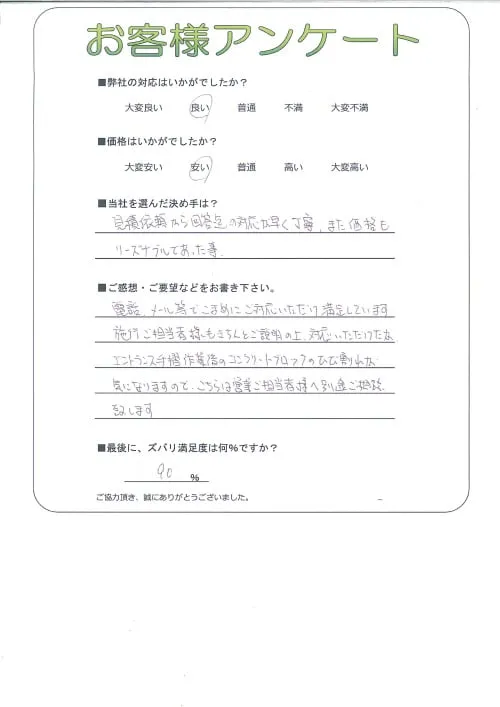 お客様アンケート
■弊社の対応はいかがでしたか?
大変良い 良い 普通 不満 大変不満
■価格はいかがでしたか?
大変安い 安い 普通 高い 大変高い
■当社を選んだ決め手は?
見積依頼から回答迄の対応が早く丁寧、また価格も
リーズナブルであった事
■ご感想・ご要望などをお書き下さい。
電話、メール等でこまめにご対応いただけ満足しています
施行ご担当者様もきちんとご説明の上、対応いただけたが
エントランス手摺作業後のコンクリートブロックのひび割れが
気になりますので、こちらは営業ご担当者様へ別途ご相談
致します
■最後に、ズバリ満足度は何%ですか?
90 %
ご協力頂き、誠にありがとうございました。